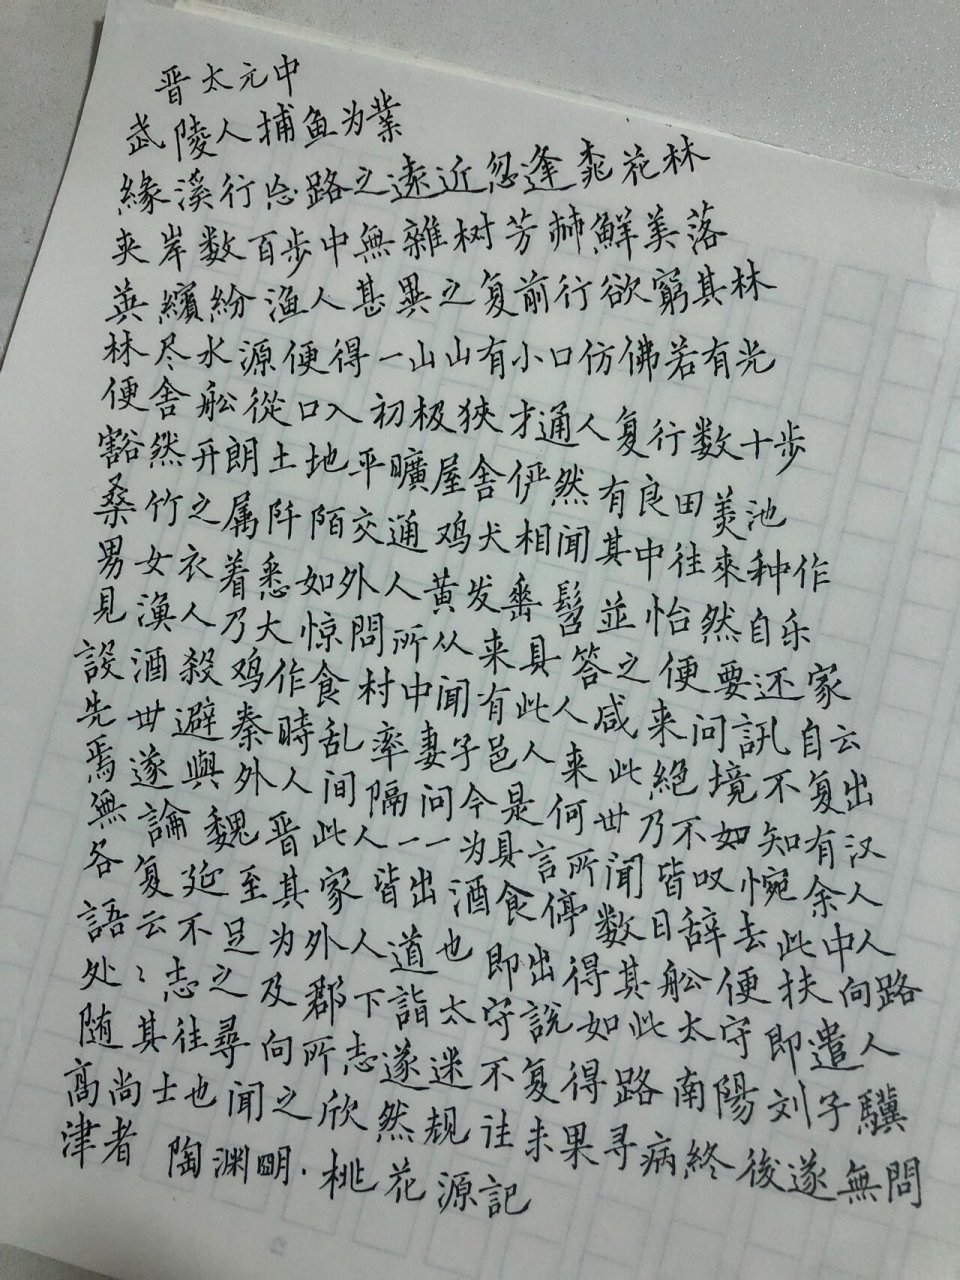 晋太元中
武陵人捕鱼为業
緣溪行忘路之遠近忽逢桃花林
夹岸数百步中無雜树芳草鮮美落
英繽紛渔人甚異之复前行欲窮其林
林尽水源便得一山山有小口仿佛若有光
便舍舩從口入初极狹才通人复行数十步
豁然开朗土地平曠屋舍俨然有良田美池
桑竹之属阡陌交通鸡犬相闻其中往來种作
男女衣着悉如外人黄发垂髫並怡然自乐
見渔人乃大惊問所从来具答之便要还家
設酒殺鸡作食村中闻有此人咸来问訊自云
先世避秦時乱率妻子邑人来此絕境不复出
焉遂與外人间隔问今是何世乃不知有汉
無論魏晋此人一一为具言所闻皆叹惋余人
各复延至其家皆出酒食停数日辞去此中人
語云不足为外人道也即出得其舩便扶向路
处〻志之及郡下詣太守説如此太守即遣人
随其往尋向所志遂迷不复得路南陽刘子驥
高尚士也闻之欣然规往未果寻病終後遂無問
津者 陶渊明.桃花源記